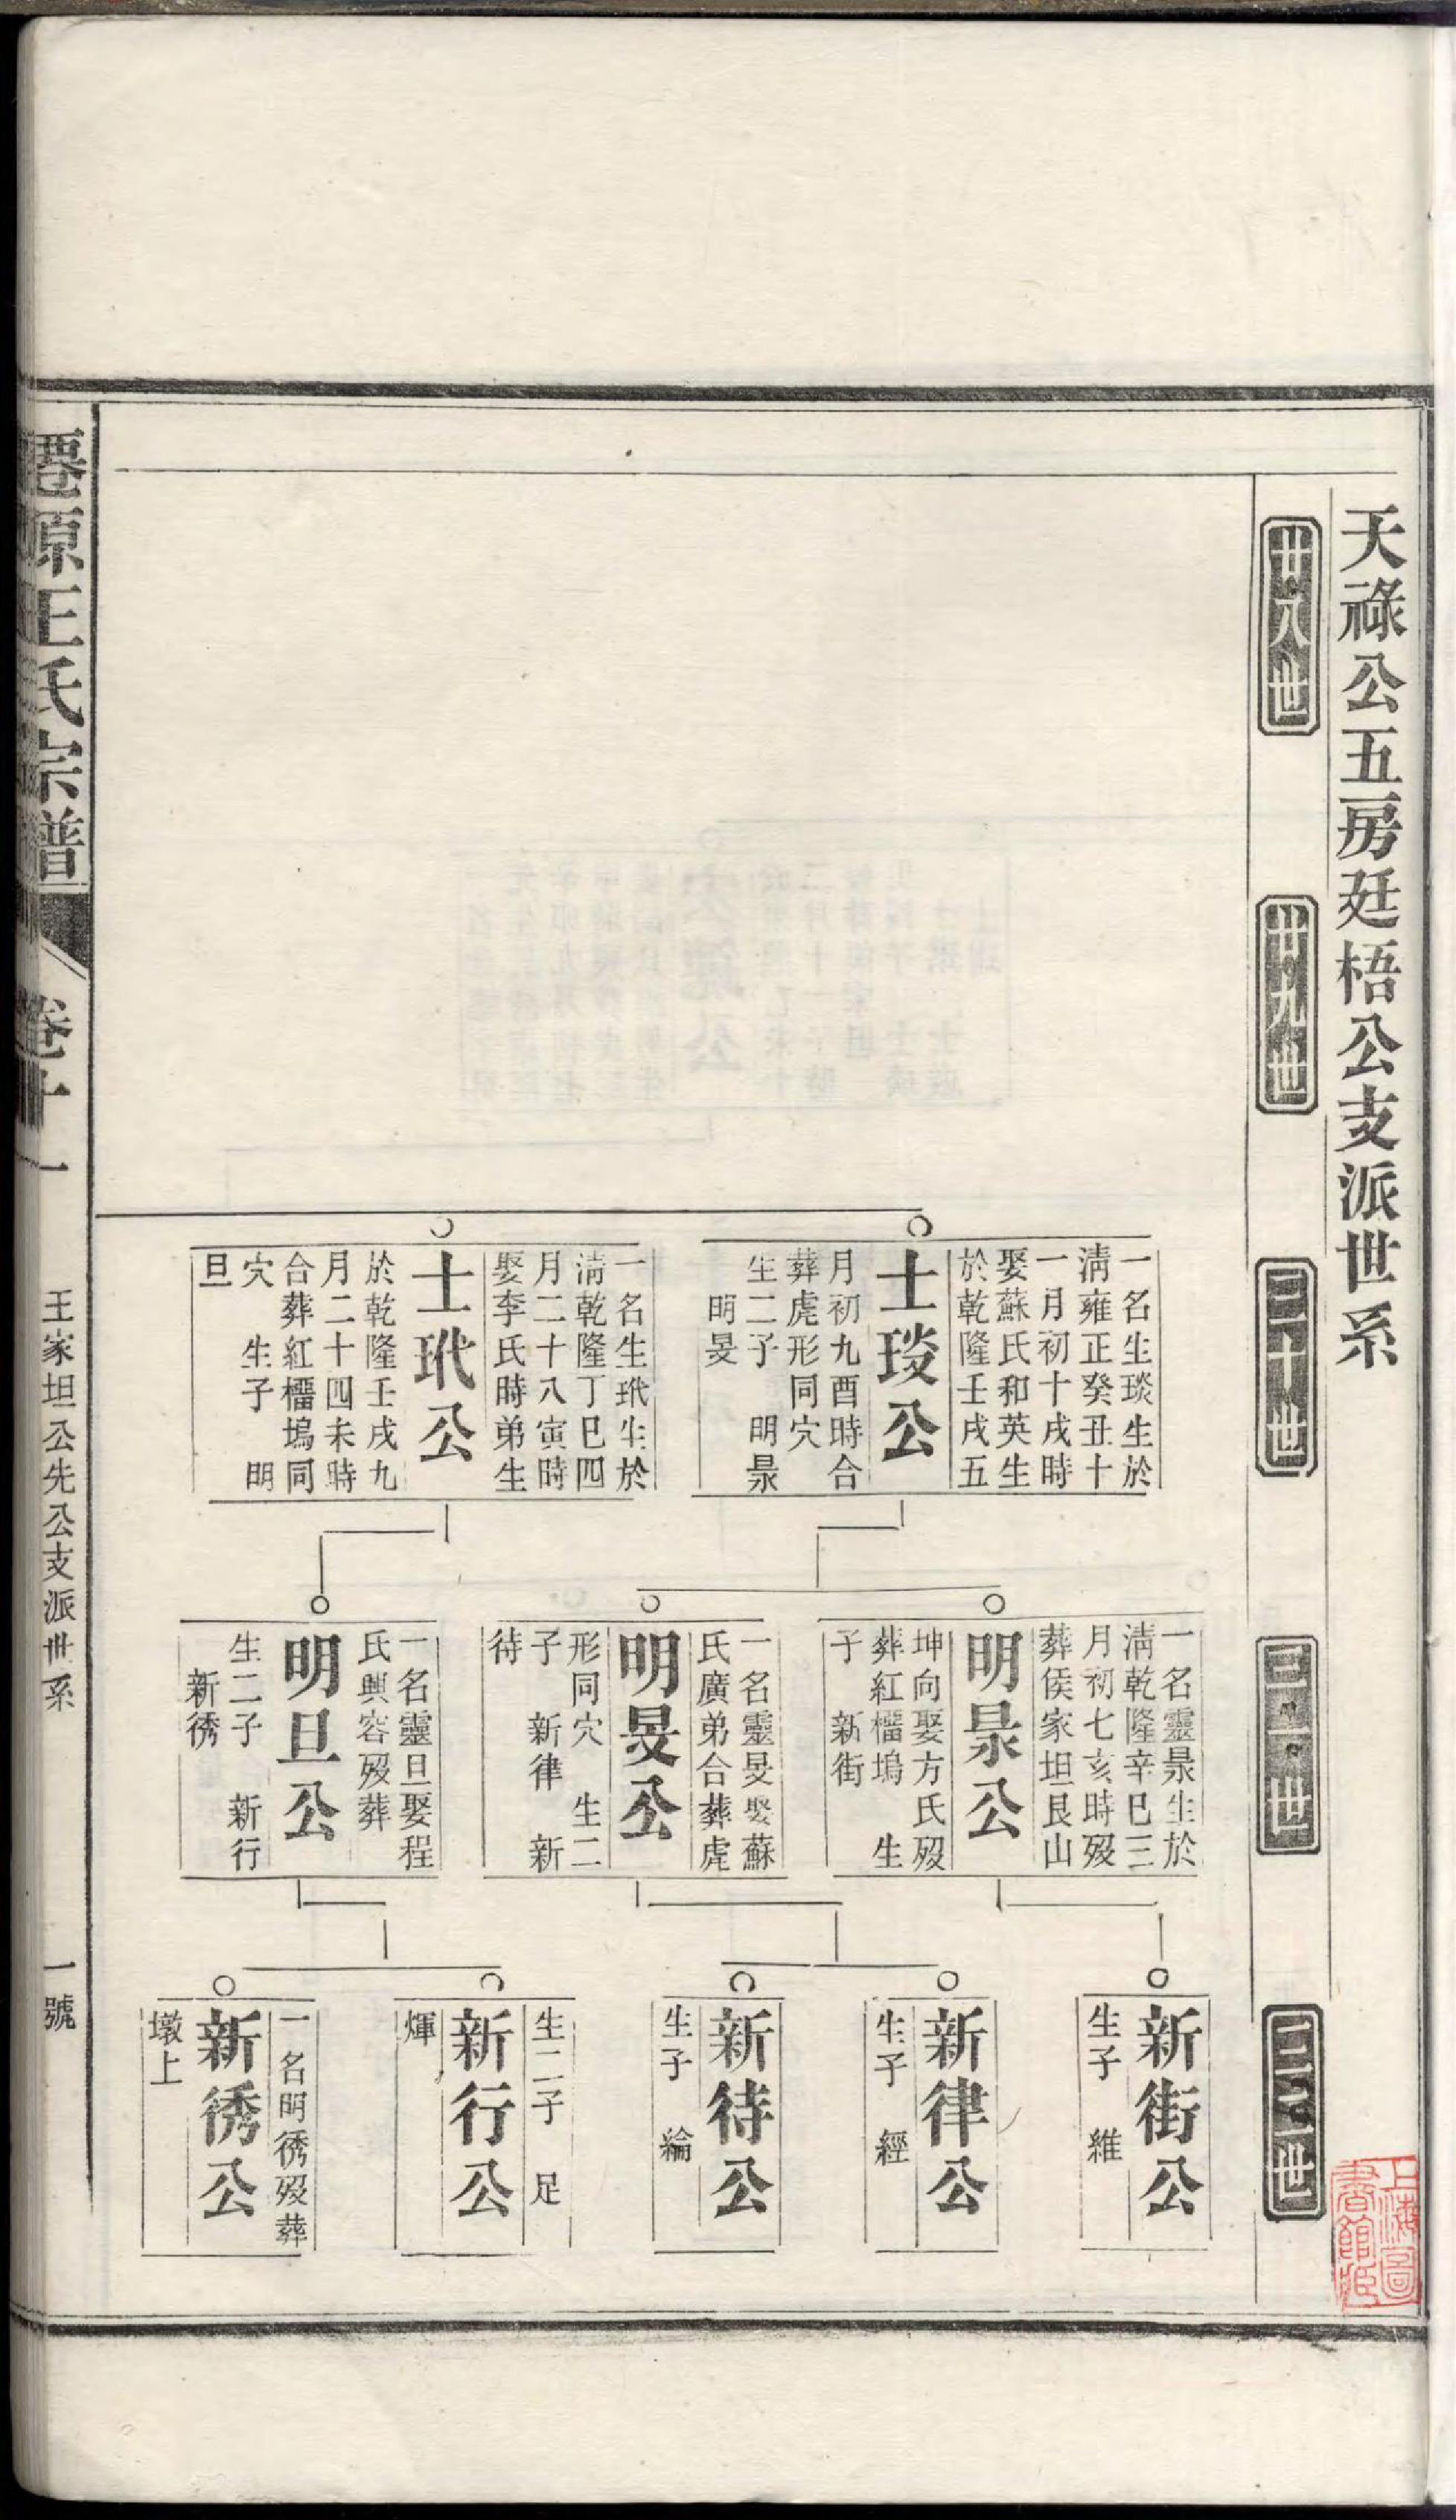 天祿公五房廷梧公支派世系
廿八世
廿九世
三十世
三一世
三二世
士琰公
一名生琰生於
淸雍正癸丑十
一月初十戌時
娶蘇氏和英生
於乾隆壬戌五
月初九酉時合
葬虎形同穴
生二子 明晸
明旻
士玳公
一名生玳生於
淸乾隆丁巳四
月二十八寅時
娶李氏時弟生
於乾隆壬戌九
月二十四未時
合葬紅櫑塢同
穴 生子 明
旦
一名靈晸生於
淸乾隆辛巳三
月初七亥時歿
葬侯家坦艮山
明晸公
坤向娶方氏歿
葬紅櫑塢 生
子 新街
一名靈旻娶蘇
氏廣弟合葬虎
明旻公
形同穴 生二
子 新律 新
待
一名靈旦娶程
氏興容歿葬
明旦公
生二子 新行
新銹
新街公
生子 維
新律公
生子 經
新待公
生子 綸
生二子 足
新行公
煇
一名明㣯歿葬
新㣯公
墩上
王氏宗譜
卷十一
王家坦公先公支派世系
一號
上海圖
書館藏